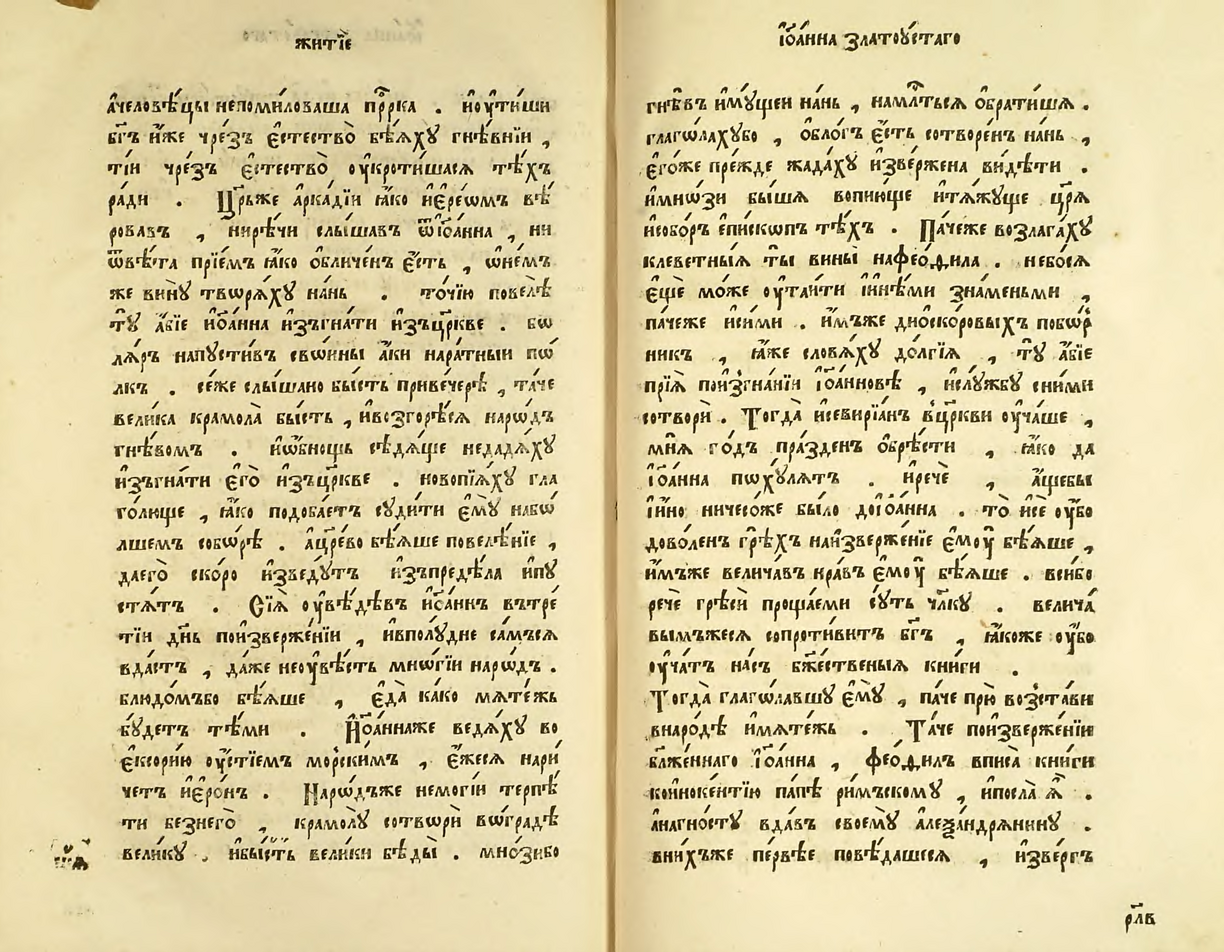 житїе
а҆человѣ́цы непомиловаша прⷪ҇рка . и҆оу҆ти́ши
бг҃ъ и҆́же чре́зъ є҆стество̀ бѣ́ѧхꙋ гнѣ́внїи ,
ті́и чре́зъ є҆стество̀ оу҆кроти́шасѧ тѣ́хъ
ра́ди . Цр҃ьже а҆рка́дїи ꙗ҆́ко и҆ере́ѡмъ вѣ́
ровавъ , нирѣ́чи слы́шавъ ѿїѡ҆а́нна , ни
ѿвѣ́та прїе́мъ ꙗ҆́ко ѡ҆бличе́нъ є҆́сть , ѡ҆не́мъ
же винꙋ̀ твѡрѧ́хꙋ на́нь . то́чїю повелѣ̀
тꙋ̀ а҆́бїе и҆ѡа́нна и҆зъгна́ти и҆зъцр҃кве . бѡ
лѧ́ръ напꙋсти́въ свѡины̀ а҆́ки нара́тныи пѡ
лкъ . се́же слы́шано бы́сть привече́рѣ , та́че
вели́ка крамола̀ бы́сть , и҆возгорѣ́сѧ наро́дъ
гнѣ́вомъ . и҆ѡ҆бно́щь сѣдѧ́ще недадѧ́хꙋ
и҆зъгна́ти є҆го̀ и҆зъцр҃кве . новопїѧ́хꙋ гла
го́люще , ꙗ҆́ко подоба́етъ сꙋди́ти є҆мꙋ̀ набѡ́
лшемъ собѡ́рѣ . а҆цр҃ево бѣ́ѧше повелѣ́нїе ,
даего̀ ско́ро и҆зведꙋ́тъ и҆зъпредѣ́ла и҆пꙋ
стѧ́тъ . Сїѧ̀ оу҆вѣ́дѣвъ и҆ѡа́ннъ вътре́
тїи дн҃ь поизверже́нїи , и҆вполꙋ́дне са́мъсѧ
вда́стъ , да́же неоувѣ́сть мно́гїи наро́дъ .
блюдо́мъбо бѣ́ѧше , є҆да̀ ка́ко мѧте́жь
бꙋ́детъ тѣ́ми . И҆ѡа́ннаже ведѧ́хꙋ во
є҆ксорі́ю оу҆́стїемъ мо́рскимъ , є҆́жесѧ нари
че́тъ и҆еро́нъ . Наро́дъже немоги́и терпѣ́
ти безнего̀ , крамо́лꙋ сотворѝ во́градѣ
вели́кꙋ . и҆бы́сть вели́ки бѣды̀ . мно́зибо
і҆ѡа́нна златоꙋ́стаго
гнѣ́въ и҆мꙋ́щеи на́нь , нами́лⷭ҇тьсѧ ѡ҆брати́шѧ .
глаго́лахꙋбо , ѡ҆бло́гъ є҆́сть сотворе́нъ на́нь ,
є҆го́же пре́жде жада́хꙋ и҆зве́ржена ви́дѣти .
и҆мно́зи бы́шѧ вопию́ще и҆тѧ́жꙋще цр҃ѧ̀
и҆собо́ръ є҆пи́скопъ тѣ́хъ . Па́чеже возлага́хꙋ
клеветны́ѧ ты̀ вины̀ нафео́ѳила . небо́сѧ
є҆щѐ мо́же оу҆таи́ти и҆и҆нѣ́ми зна́меньми ,
па́чеже и҆си́ми . и҆́мъже дио́скоровыхъ побо́р
никъ , ꙗ҆́же словѧ́хꙋ до́лгїѧ , тꙋ̀ а҆́бїе
прїѧ̀ пои҆згна́нїи і҆ѡа́нновѣ , и҆слꙋ́жбꙋ сни́ми
сотворѝ . Тогда̀ и҆севирїа́нъ вцр҃кви оу҆ча́ше ,
мнѧ̀ го́дъ пра́зденъ ѡ҆брѣ́сти , ꙗ҆́ко да
і҆ѡа́нна похꙋ́лѧтъ . и҆речѐ , а҆́щебы
и҆и҆́но ничесо́же бы́ло дої҆ѡа́нна . то̀ и҆сѐ оу҆́бо
дово́ленъ грѣ́хъ наи҆зверже́нїе є҆моу̀ бѣ́ѧше ,
и҆́мъже велича́въ нра́въ є҆моу̀ бѣ́ѧше . вси́бо
речѐ грѣсѝ проща́еми сꙋ́ть чл҃кꙋ . велича́
вымъжесѧ сопроти́витъ бг҃ъ , ꙗ҆́коже оу҆́бо
оу҆ча́тъ на́съ бж҃е́ственыѧ кни́ги .
Тогда̀ глаго́лавшꙋ є҆мꙋ̀ , па́че прю̀ возста́ви
внаро́дѣ и҆мѧте́жь . Та́че поизверже́нїи
бл҃же́ннаго і҆ѡа́нна , фео́ѳилъ вписа̀ кни́ги
коиноке́нтїю па́пѣ ри́мъскомꙋ , и҆посла̀ ѧ҆̀ .
а҆нагно́стꙋ вда́въ своемꙋ̀ а҆леѯандрѧ́нинꙋ .
вни́хъже пе́рвѣе повѣ́дашесѧ , и҆зве́ргъ
рл҃в